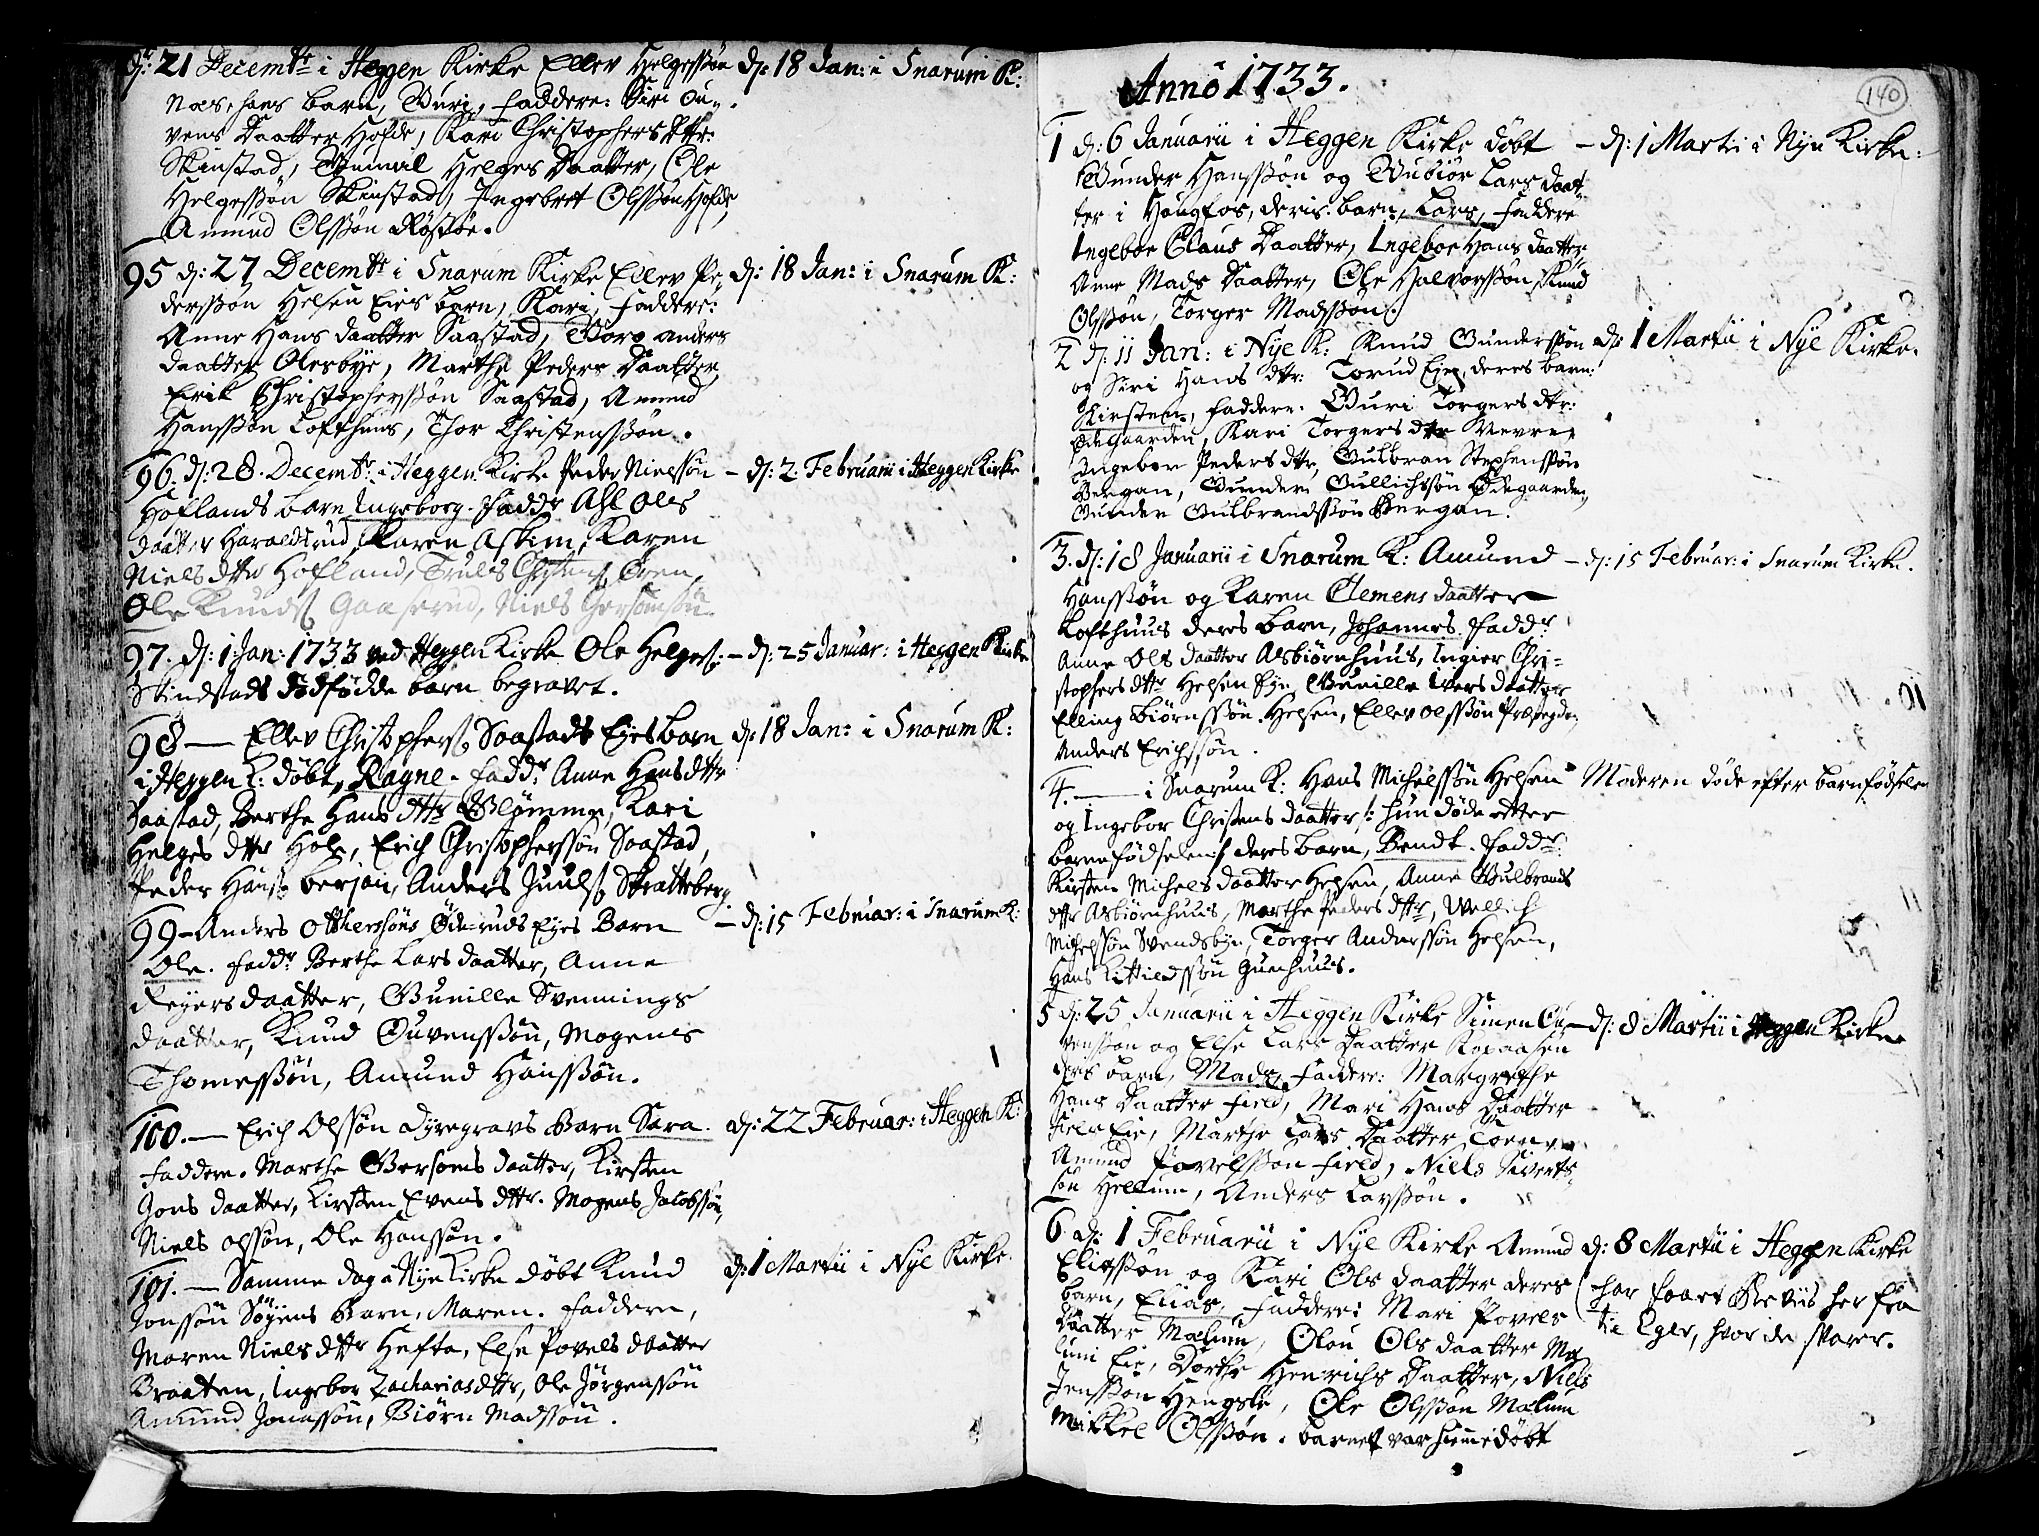 d: 21 Decembr i Heggen Kirke Ellev Helgessøn
Næs, hans barn, Guri, faddere: Siri Ou-
vens Daatter Hofde, Kari Christophers Dttr:
Skinstad, Gunnil Helges Daatter, Ole
Helgessøn Skinstad, Ingebret Olssøn Hofde,
Amund Olssøn
d: 18 Jan: i Snarum K:
95 d: 27 Decembr i Snarum Kirke Ellev Pe-
derssøn Helsen Eies barn, Kari, faddere:
Anne Hans daatter Saastad, Goro anders
daatter Olesbye, Marthe Peders Daatter,
Erik Christopherssøn Saastad, Amund
Hanssøn Lofthuus, Thor Christenssøn.
d: 18 Jan: i Snarum K:
96. d: 28. Decembr: i Heggen Kirke Peder Nielssøn
Hoflands barn Ingeborg. Faddr Ahl Ols
daatter Haraldsrud, Karen Askim, Karen
Niels dttr Hofland, Truls Christens. Øren,
Ole Knuds. Gaaserud, Niels Gersomssøn.
- d: 2 Februarii i Heggen Kirke
97. d: 1 Jan: 1733 ved Heggen Kirke Ole Helges.
Skindstads dødfødde barn begravet.
- d: 25 Januar: i Heggen Kirke
98 — Ellev Christophers. Saastads Eyes barn
i Heggen K: døbt, Ragne. Faddr Anne Hans dttr
Saastad, Berthe Hans dttr Glømme, Kari
Helges dttr Hole, Erich Christopherssøn Saastad,
Peder Hans. berjan, Anders Juuls. Skratteberg
d: 18 Jan: i Snarum K:
99 - Anders Otherssøns Øderuds Eyes Barn
Ole. Faddr Berthe Lars daatter, Anne
Reyers daatter, Gunille Svennings
daatter, Knud Ouvenssøn, Mogens
Thomessøn, Amund Hanssøn.
- d: 15 Februar: i Snarum K:
100. — Erich Olssøn Dyregravs Barn Sara.
Faddere. Marthe Gersoms daatter, Kirsten
Jons daatter, Kirsten Evens dttr. Mogens Jacobssøn,
Niels Olssøn, Ole Hanssøn.
d: 22 Februar: i Heggen K:
101. — Samme dag i Nye Kirke døbt Knud
Jonssøn Søyens Barn, Maren. Faddere,
Maren Niels dttr Hefte, Else Povels daatter
Braaten, Ingebor Zacharias dttr, Ole Jørgenssøn
Amund Jonassøn, Biørn Madssøn.
d: 1 Martii i Nye Kirke.
Anno 1733.
140
1 d: 6 Januarii i Heggen Kirke døbt
Gunder Hanssøn og Gubiør Lars daat-
ter i Haugfos, deris barn, Lars, faddere
Ingebor Claus Daatter, Ingebor Hans daatter,
Anne Mads Daatter, Ole Halvorssøn, Knud
Olssøn, Torger Madssøn.
- d: 1 Martii i Nye Kirke:
2 d: 11 Jan: i Nye K: Knud Gunderssøn
og Siri Hans dttr: Torud Eje, deres barn:
Kirsten, faddere. Guri Torgers dttr:
Ødegaarden, Kari Torgers dttr
Ingebor Peders dttr, Gulbran Stephenssøn
Bergan, Gunder Gullichssøn Ødegaarden,
Gunder Gulbrandssøn Bergan.
d: 1 Martii i Nye Kirke.
3. d: 18 Januarii i Snarum K: Amund
Hanssøn og Karen Clemens daatter
Lofthuus deres barn, Johannes. Faddr
Anne Ols daatter Asbiørnhuus, Ingier Chri-
stophers dttr Helsen Eye, Gunille Ivers daatter
Elling Biørnssøn Helsen, Ellev Olssøn
Anders Erichssøn.
- d: 15 Februar: i Snarum Kirke.
4. — i Snarum K: Hans Michelssøn Helsen
og Ingebor Christens daatter /: hun døde etter
barnefødselen :/ deres barn, Bendt. Faddr:
Kirsten Michels daatter Helsen, Anne Gulbrands
dttr Asbiørnhuus, Marthe Peders dttr, Wellich
Michelssøn Svendsbye, Torger Anderssøn Helsen,
Hans Kittildssøn
Moderen døde efter barnfødselen
5 d: 25 Januarii i Heggen Kirke Simen Ou-
venssøn og Else Lars Daatter Kopaasen
deris barn, Mads, Faddere: Margrethe
Hans Daatter Field, Mari Hans Daatter
Field Eie, Marthe Lars Daatter
Amund Povelssøn Field, Niels Siverts-
søn Hellum, Anders Larssøn.
- d: 8 Martii i Heggen Kirke
6. d: 1 Februarii i Nye Kirke Amund
Eliassøn og Kari Ols daatter deres
barn, Elias, Faddere: Mari Povels
Daatter Mælum, Olou Ols daatter Mæ-
lum Eie, Dorthe Henrichs Daatter, Niels
Jenssøn Hengsle, Ole Olssøn Mælum
Mikkel Olssøn. barnet var hiemedøbt
d: 8 Martii i Heggen Kirke
har faaet Beviis her fra
til Eger, hvor de svarer.